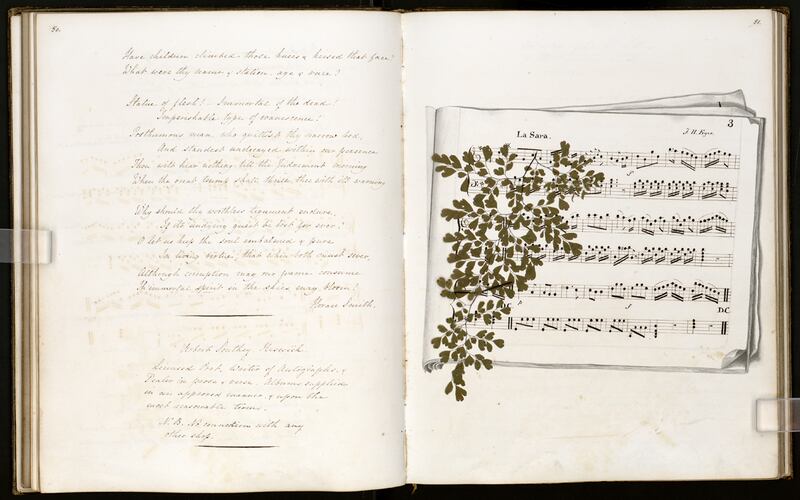 80.
Have children climbed those knees & kissed that face?
What were thy name & station, age & race?
Statue of flesh! Immortal of the dead!
Imperishable type of evanescence!
Posthumous man, who quittest thy narrow bed,
And standest undecayed within our presence
Thou wilt hear nothing till the Judgement morning
When the great trump shall thrill thee with its warning
Why should thy worthless tegument endure,
If its undying guest be lost for ever?
O let us keep the soul embalmed & pure
In living virtue; that when both must sever,
Although corruption may our frame consume
Th' immortal spirit in the skies may bloom!
Horace Smith.
Robert Southey Keswick
Licensed Poet, Writer of Autographs, &
Dealer in prose & verse. Albums supplied
in an approved manner & upon the
most reasonable terms.
N.B. No connection with any
other shop.
81.
3
La Sara.
D.C.